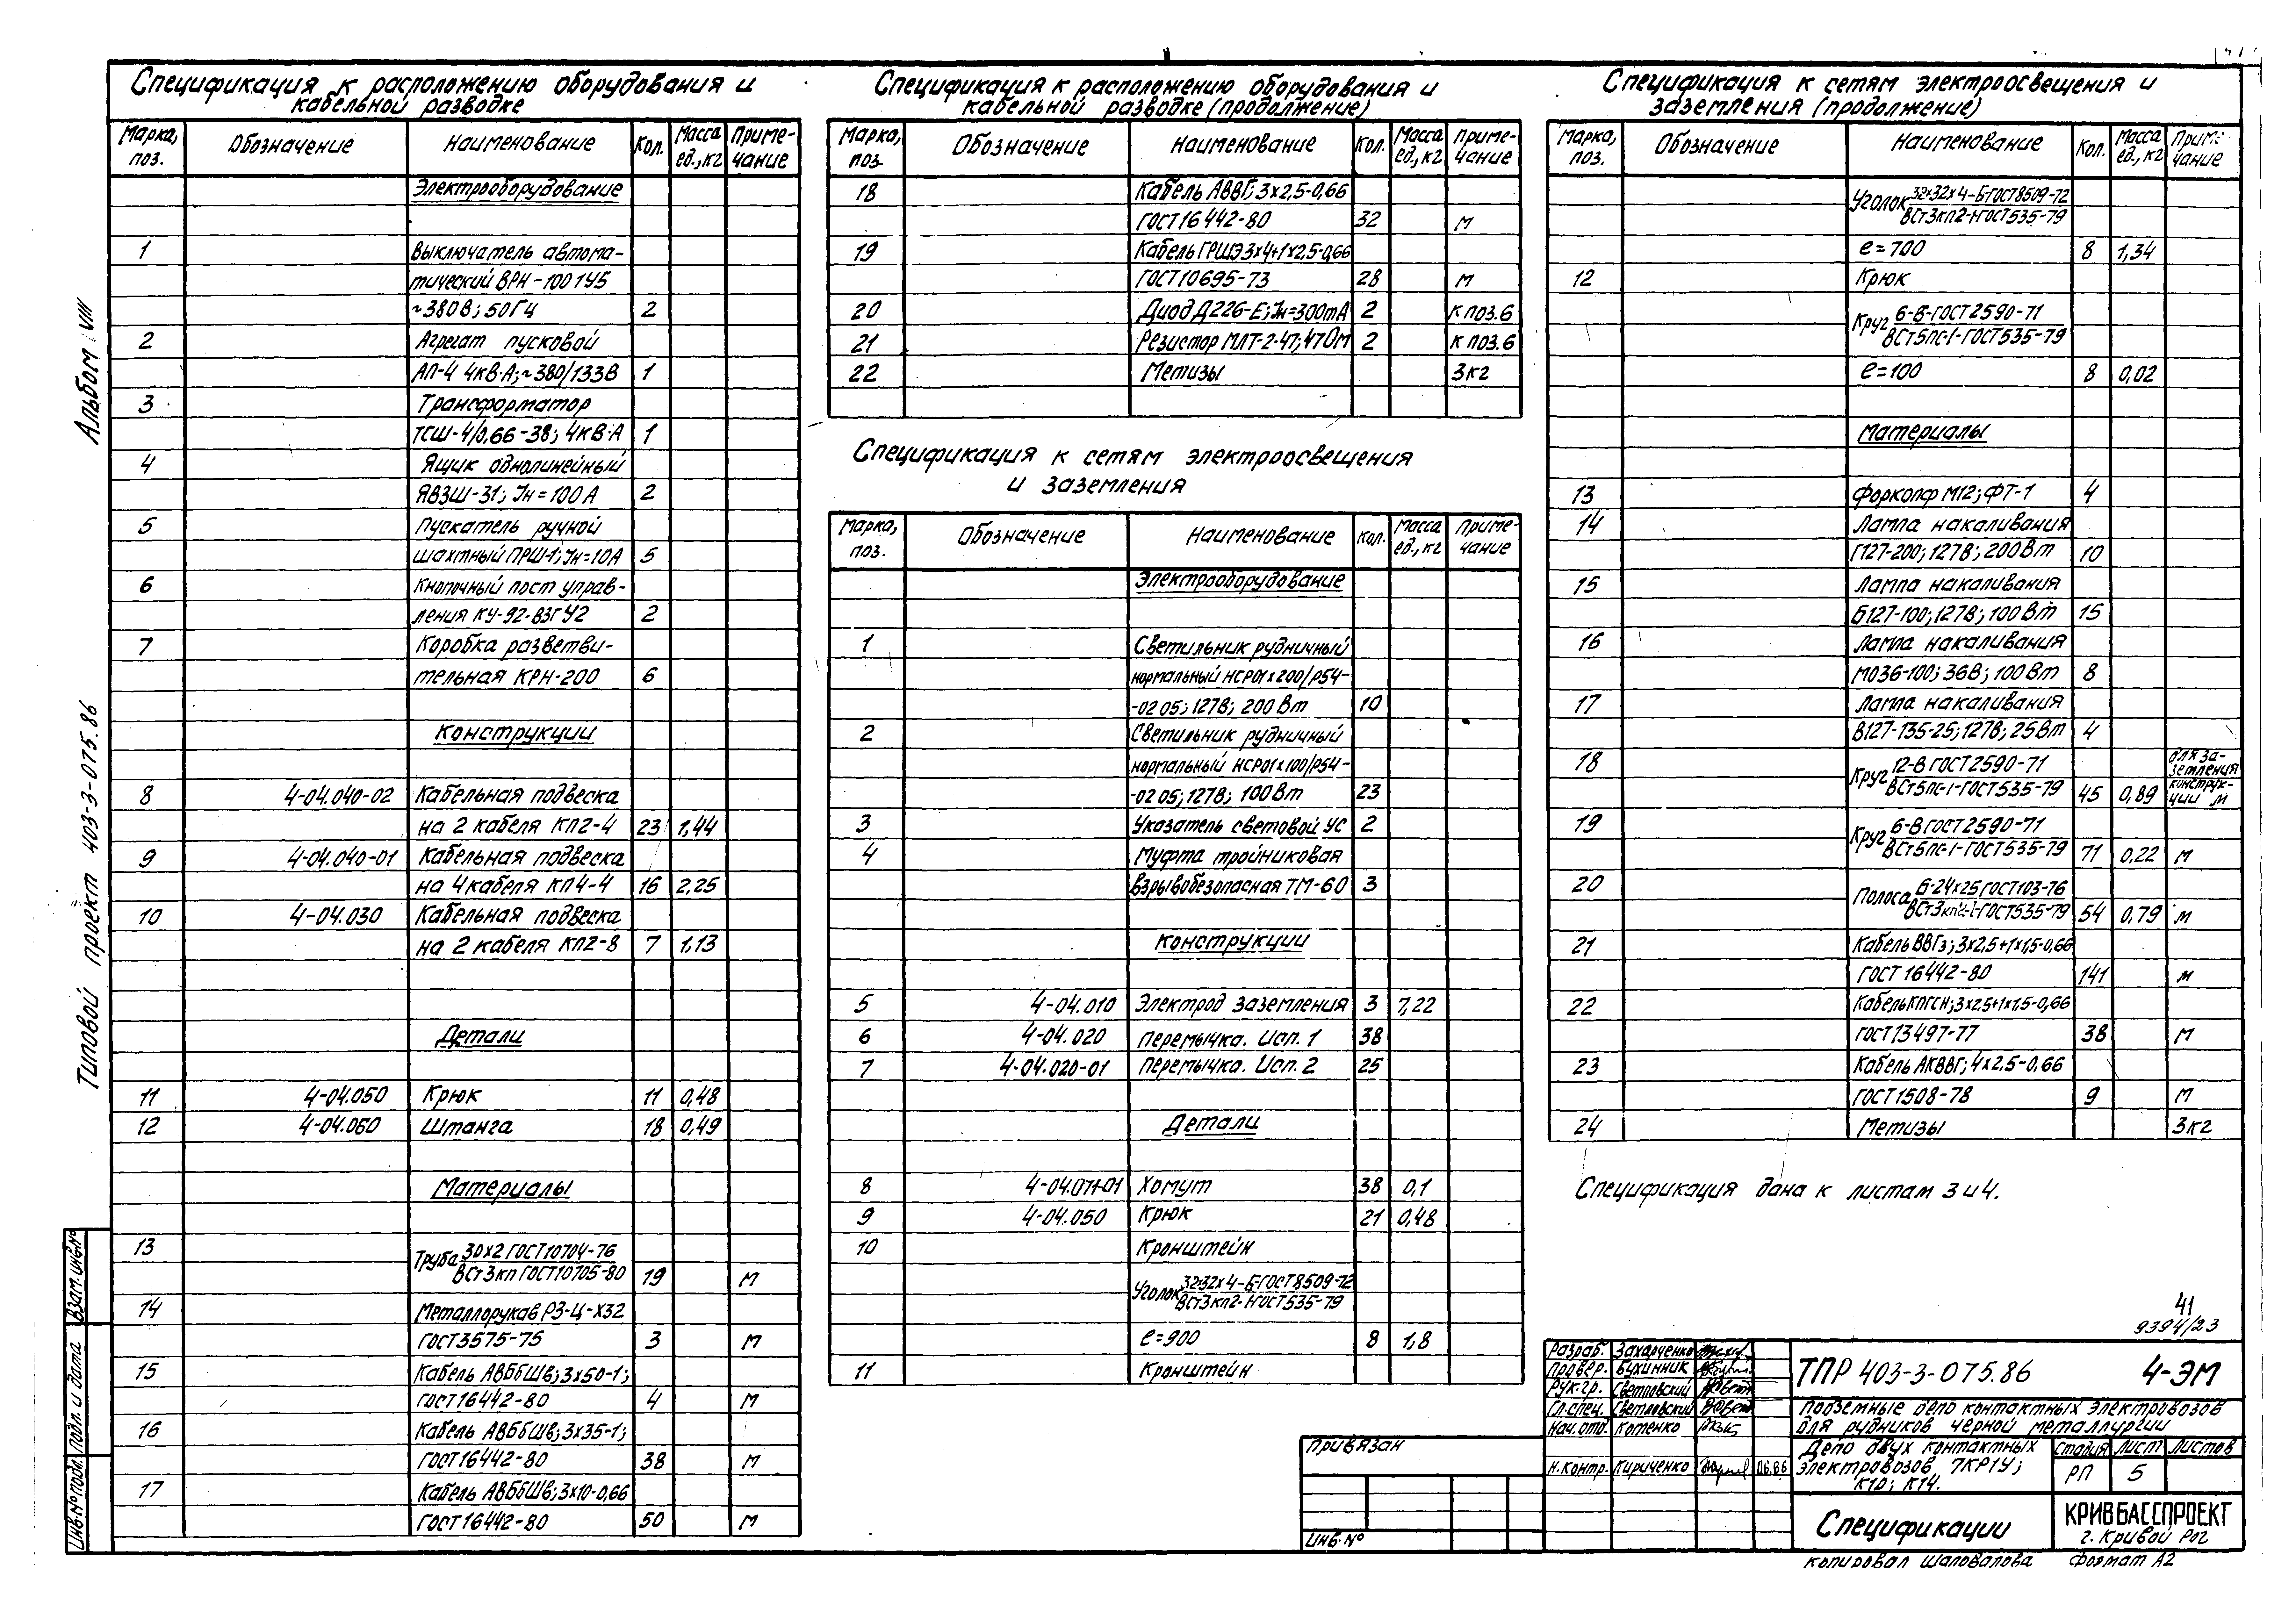 Альбом VIII
Типовой проект 403-3-075.86
Спецификация к расположению оборудования и
кабельной разводке
Марка, поз. Обозначение Наименование Кол. Масса ед., кг Примечание
Электрооборудование
1 Выключатель автома-
тический ВРН-100 1У5
~380В; 50Гц 2
2 Агрегат пусковой
АП-4 4кВ·А; ~380/133В 1
3 Трансформатор
ТСШ-4/0,66-38; 4кВ·А 1
4 Ящик однолинейный
ЯВЗШ-31; Iн=100А 2
5 Пускатель ручной
шахтный ПРШ-1; Iн=10А 5
6 Кнопочный пост управ-
ления КУ-92-ВЗГУ2 2
7 Коробка разветви-
тельная КРН-200 6
Конструкции
8 4-04.040-02 Кабельная подвеска
на 2 кабеля КП2-4 23 1,44
9 4-04.040-01 Кабельная подвеска
на 4 кабеля КП4-4 16 2,25
10 4-04.030 Кабельная подвеска
на 2 кабеля КП2-8 7 1,13
Детали
11 4-04.050 Крюк 11 0,48
12 4-04.060 Штанга 18 0,49
Материалы
13 Труба 30х2 ГОСТ10704-76
ВСт3кп ГОСТ10705-80 19 м
14 Металлорукав РЗ-Ц-Х32
ГОСТ3575-75 3 м
15 Кабель АВБбШв; 3х50-1;
ГОСТ16442-80 4 м
16 Кабель АВБбШв; 3х35-1;
ГОСТ16442-80 38 м
17 Кабель АВБбШв; 3х10-0,66
ГОСТ16442-80 50 м
Спецификация к расположению оборудования и
кабельной разводке (продолжение)
Марка, поз. Обозначение Наименование Кол. Масса ед., кг Примечание
18 Кабель АВВГ; 3х2,5-0,66
ГОСТ16442-80 32 м
19 Кабель ГРШЭ 3х4+1х2,5-0,66
ГОСТ10695-73 28 м
20 Диод Д226-Е; Iн=300mА 2 к поз.6
21 Резистор МЛТ-2-47; 47Ом 2 к поз.6
22 Метизы 3кг
Спецификация к сетям электроосвещения
и заземления
Марка, поз. Обозначение Наименование Кол. Масса ед., кг Примечание
Электрооборудование
1 Светильник рудничный
нормальный НСР01х200/Р54-
-02 05; 127В; 200Вт 10
2 Светильник рудничный
нормальный НСР01х100/Р54-
-02 05; 127В; 100Вт 23
3 Указатель световой УС 2
4 Муфта тройниковая
взрывобезопасная ТМ-60 3
Конструкции
5 4-04.010 Электрод заземления 3 7,22
6 4-04.020 Перемычка. Исп. 1 38
7 4-04.020-01 Перемычка. Исп. 2 25
Детали
8 4-04.071-01 Хомут 38 0,1
9 4-04.050 Крюк 21 0,48
10 Кронштейн
Уголок 32х32х4-Б-ГОСТ8509-72
ВСт3кп2-I-ГОСТ535-79
ℓ=900 8 1,8
11 Кронштейн
Спецификация к сетям электроосвещения и
заземления (продолжение)
Марка, поз. Обозначение Наименование Кол. Масса ед., кг Примечание
Уголок 32х32х4-Б-ГОСТ8509-72
ВСт3кп2-I-ГОСТ535-79
ℓ=700 8 1,34
12 Крюк
Круг 6-В-ГОСТ2590-71
ВСт5пс-I-ГОСТ535-79
ℓ=100 8 0,02
Материалы
13 Форкопф М12; ФТ-1 4
14 Лампа накаливания
Г127-200; 127В; 200Вт 10
15 Лампа накаливания
Б127-100; 127В; 100Вт 15
16 Лампа накаливания
МО36-100; 36В; 100Вт 8
17 Лампа накаливания
В127-135-25; 127В; 25Вт 4
18 Круг 12-В ГОСТ2590-71
ВСт5пс-I-ГОСТ535-79 45 0,89 для заземления конструкции м
19 Круг 6-В ГОСТ2590-71
ВСт5пс-I-ГОСТ535-79 71 0,22 м
20 Полоса Б-2 4х25 ГОСТ103-76
ВСт3кп2-I-ГОСТ535-79 54 0,79 м
21 Кабель ВВГз; 3х2,5+1х1,5-0,66
ГОСТ 16442-80 141 м
22 Кабель КПГСН; 3х2,5+1х1,5-0,66
ГОСТ13497-77 38 м
23 Кабель АКВВГ; 4х2,5-0,66
ГОСТ1508-78 9 м
24 Метизы 3кг
Спецификация дана к листам 3 и 4.
41
9394/23
Разраб. Захарченко
Провер. Бухинник
Рук.гр. Светловский
Гл.спец. Светловский
Нач.отд. Котенко
Н.контр. Кириченко 06.86
ТПР 403-3-075.86 4-ЭМ
Подземные депо контактных электровозов
для рудников черной металлургии
Депо двух контактных
электровозов 7КР1У;
К10; К14.
Стадия Лист Листов
РП 5
Спецификации
КРИВБАССПРОЕКТ
г. Кривой Рог
Привязан
Инв.№
Копировал Шаповалова Формат А2
Взам. инв.№
Подп. и дата
Инв.№ подл.